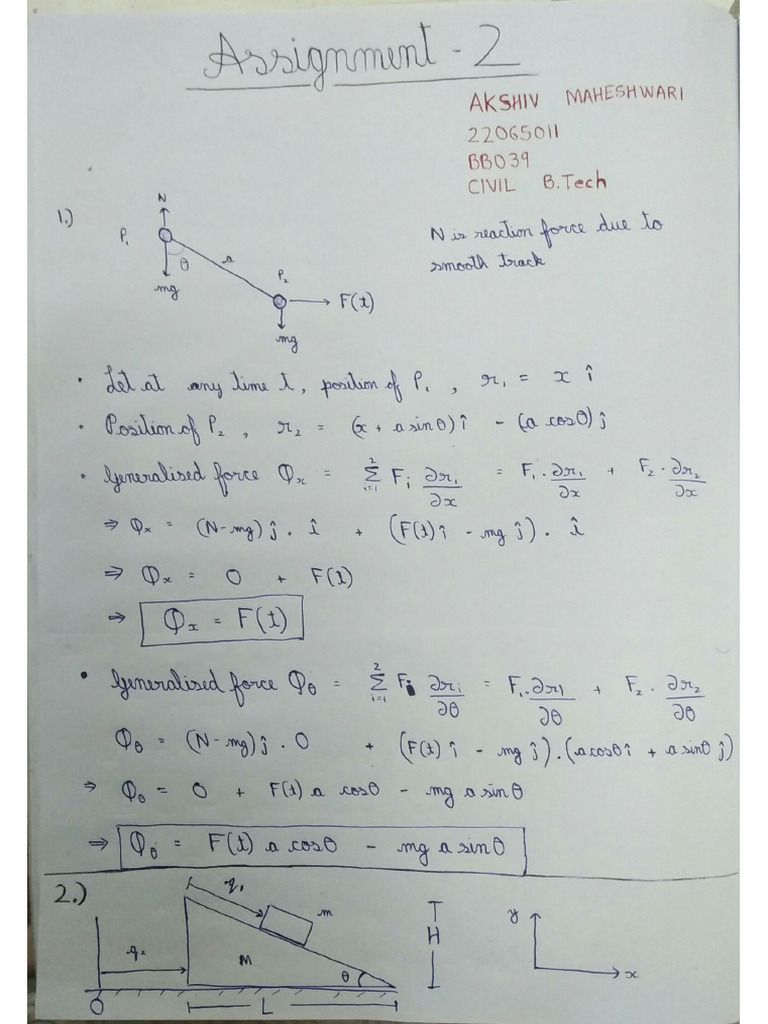 Assignment - 2
AKSHIV MAHESHWARI
22065011
BB039
CIVIL B.Tech
1.)
N
P₁
θ
a
mg
P₂
F(t)
mg
N is reaction force due to
smooth track
• Let at any time t, position of P₁ , r₁ = x î
• Position of P₂ , r₂ = (x + a sinθ) î - (a cosθ) ĵ
• Generalised force Φₓ = Σ_{i=1}^{2} Fᵢ ∂r₁/∂x = F₁ . ∂r₁/∂x + F₂ . ∂r₂/∂x
⇒ Φₓ = (N-mg) ĵ . î + (F(t) î - mg ĵ) . î
⇒ Φₓ = 0 + F(t)
⇒ Φₓ = F(t)
• Generalised force Φθ = Σ_{i=1}^{2} Fᵢ ∂rᵢ/∂θ = F₁ . ∂r1/∂θ + F₂ . ∂r₂/∂θ
Φθ = (N-mg) ĵ . 0 + (F(t) î - mg ĵ) . (a cosθ î + a sinθ ĵ)
⇒ Φθ = 0 + F(t) a cosθ - mg a sinθ
⇒ Φθ = F(t) a cosθ - mg a sinθ
2.)
q₁
m
q₂
M
θ
H
L
O
y
x